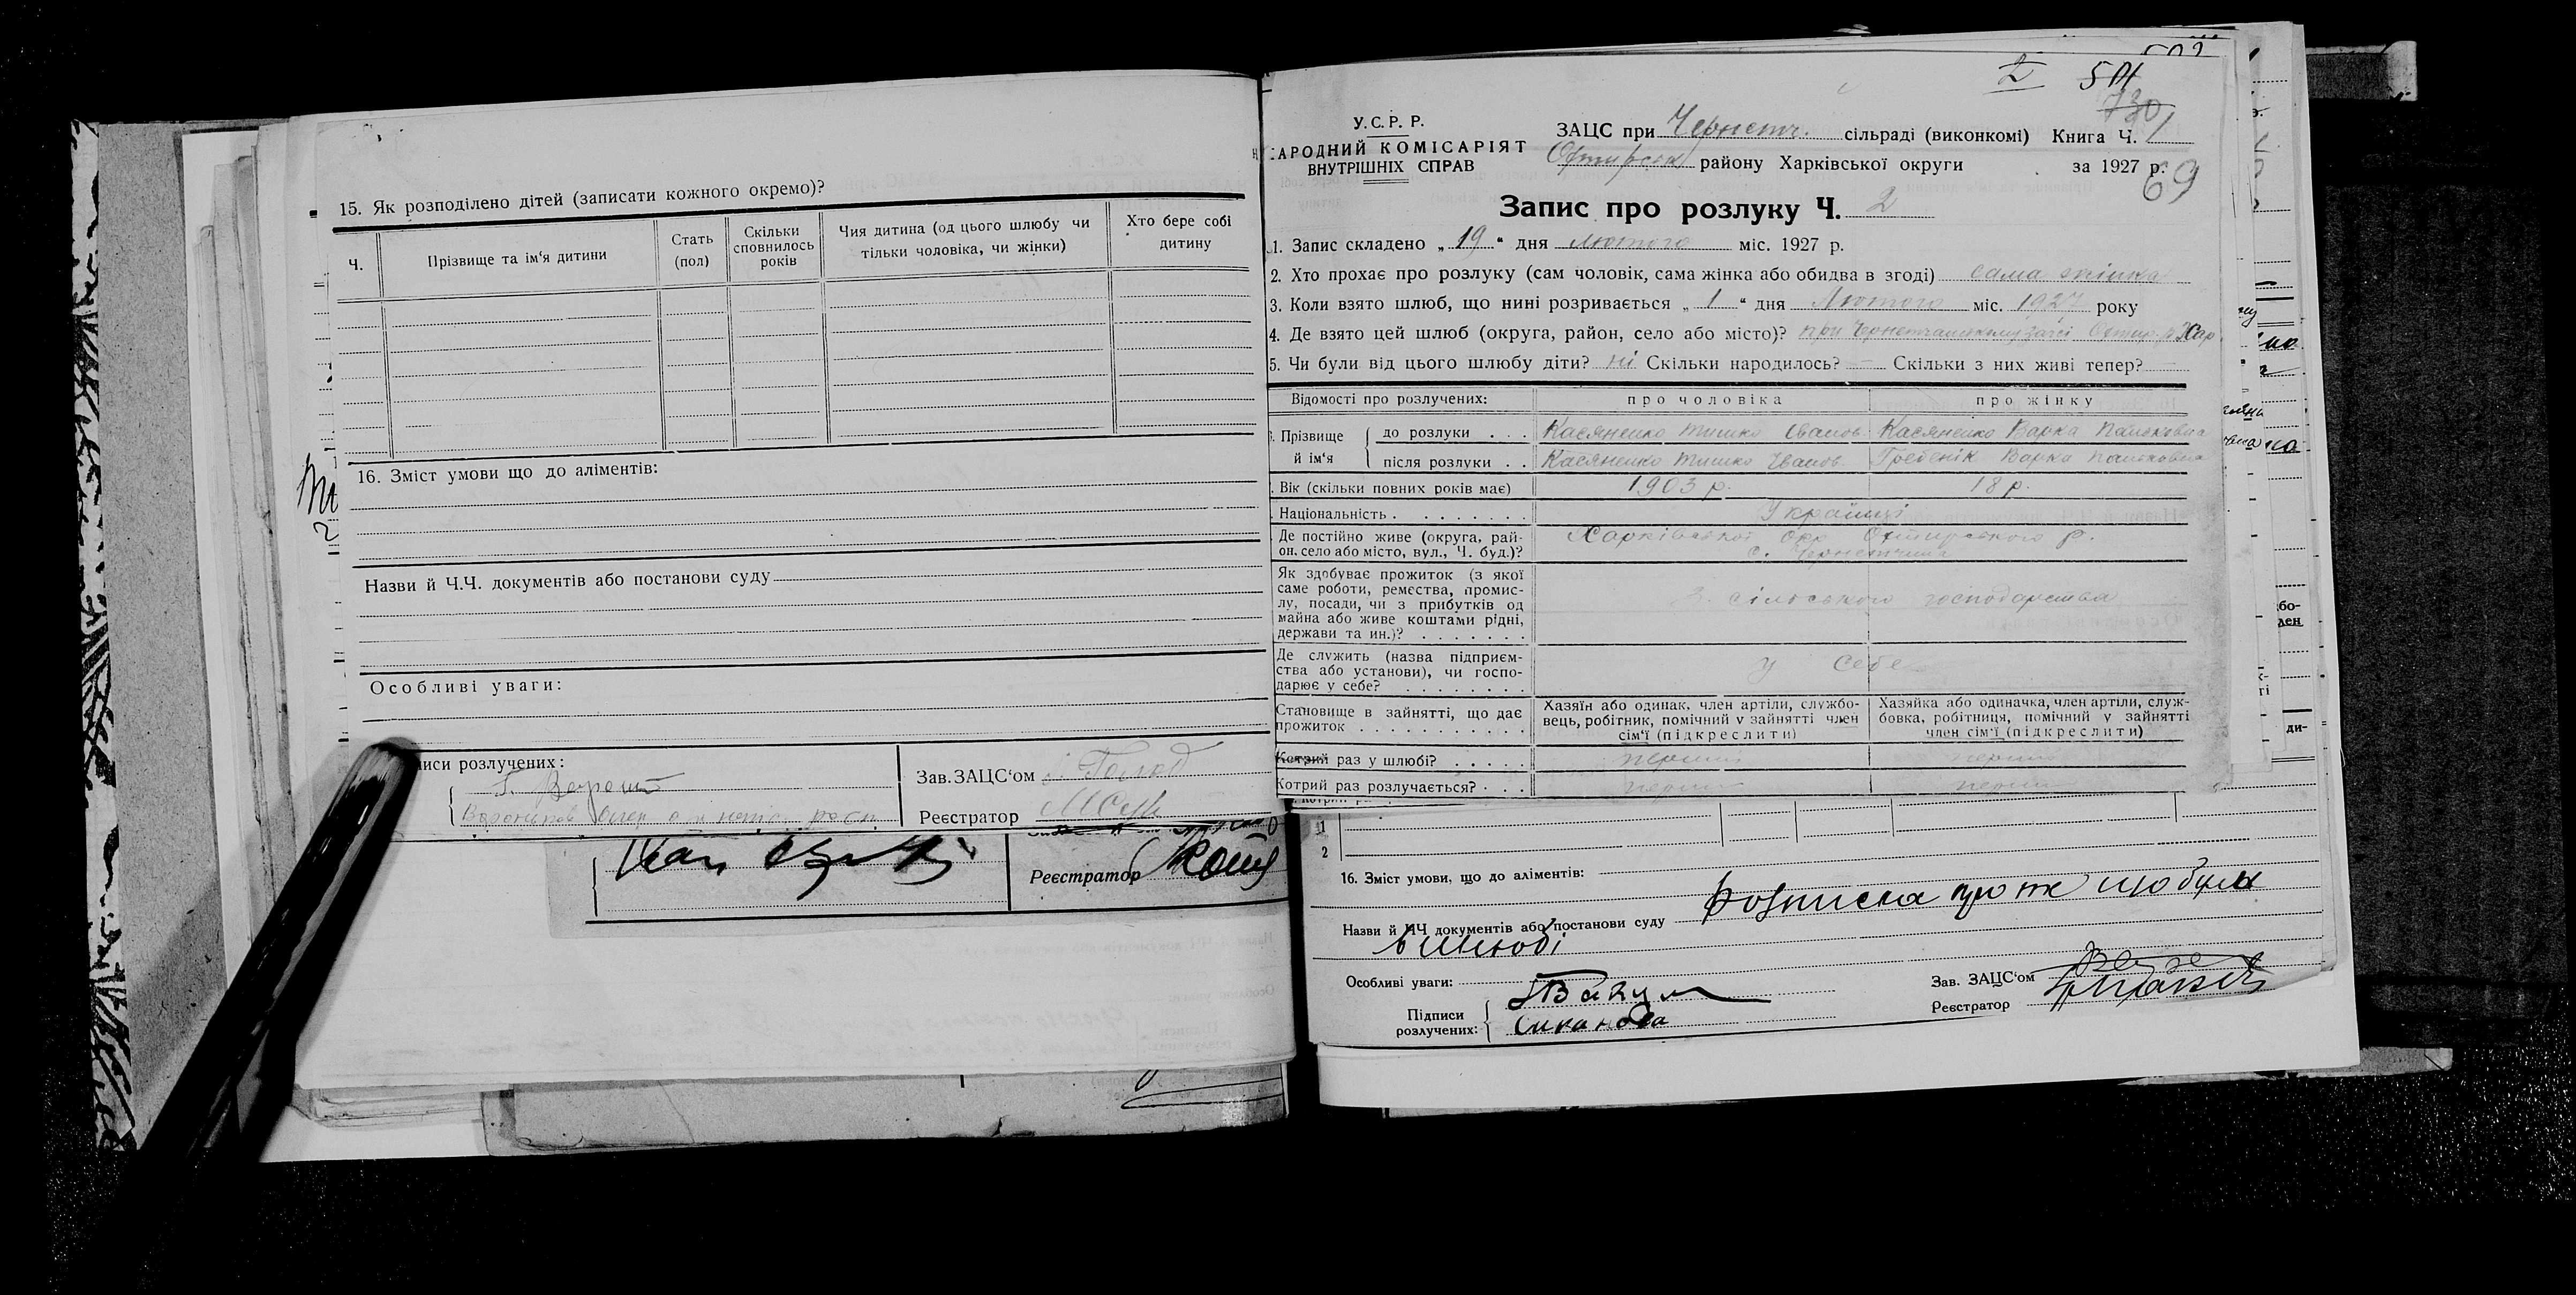 15. Як розподілено дітей (записати кожного окремо)?
Ч.
Прізвище та ім'я дитини
Стать
(пол)
Скільки
сповнилось
років
Чия дитина (од цього шлюбу чи
тільки чоловіка, чи жінки)
Хто бере собі
дитину
16. Зміст умови що до аліментів:
Назви й Ч.Ч. документів або постанови суду
Особливі уваги:
писи розлучених:
Зав. ЗАЦС'ом
Реєстратор
Реєстратор
2 501
730
У.С.Р.Р.
АРОДНИЙ КОМІСАРІЯТ
ВНУТРІШНІХ СПРАВ
ЗАЦС при Чернетч. сільраді (виконкомі) Книга Ч. 1
Охтирськ району Харківської округи за 1927 р.
69
Запис про розлуку Ч. 2
1. Запис складено „19" дня лютого міс. 1927 р.
2. Хто прохає про розлуку (сам чоловік, сама жінка або обидва в згоді) сама жінка
3. Коли взято шлюб, що нині розривається „1" дня Лютого міс. 1927 року
4. Де взято цей шлюб (округа, район, село або місто)? при Охтир. р. Хар
5. Чи були від цього шлюбу діти? ні Скільки народилось? — Скільки з них живі тепер?
Відомості про розлучених: про чоловіка про жінку
Прізвище й ім'я
до розлуки . . . Касяненко Тишко Іванов Касяненко Варка Паньковна
після розлуки . . Касяненко Тишко Іванов Гребенік Варка Паньковна
Вік (скільки повних років має) 1903 р. 18 р.
Національність . . . . . . . . Українці
Де постійно живе (округа, рай-
он, село або місто, вул., Ч. буд.)?
Харківської Окр Охтирського р.
с. Чернетчина
Як здобуває прожиток (з якої
саме роботи, ремества, промис-
лу, посади, чи з прибутків од
майна або живе коштами рідні,
держави та ин.)? . . . . . . .
З сільського господарства
Де служить (назва підприєм-
ства або установи), чи госпо-
дарює у себе? . . . . . . . .
у себе
Становище в зайнятті, що дає
прожиток . . . . . . . . . . .
Хазяїн або одинак, член артіли, службо-
вець, робітник, помічний у зайнятті член
сім'ї (підкреслити)
Хазяйка або одиначка, член артіли, служ-
бовка, робітниця, помічний у зайнятті
член сім'ї (підкреслити)
Котрий раз у шлюбі? . . . . . перший перший
Котрий раз розлучається? . . . перший перший
1
2
16. Зміст умови, що до аліментів:
Назви й ЧЧ документів або постанови суду Росписка про те що були
в шлюбі
Особливі уваги:
Підписи
розлучених:
Зав. ЗАЦС'ом
Реєстратор